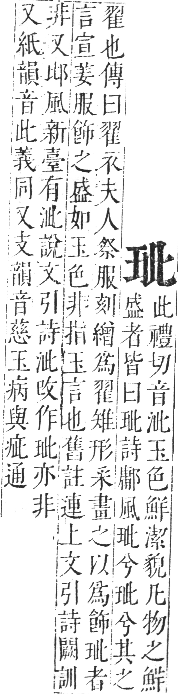 玼
此禮切音泚玉色鮮潔貌凡物之鮮
盛者皆曰玼詩鄘風玼兮玼兮其之
翟也傳曰翟衣夫人祭服刻繒爲翟雉形采畫之以爲飾玼者
言宣姜服飾之盛如玉色非指玉言也舊註連上文引詩闕訓
非又邶風新臺有泚說文引詩泚攺作玼亦非
又紙韻音此義同又支韻音慈玉病與疵通